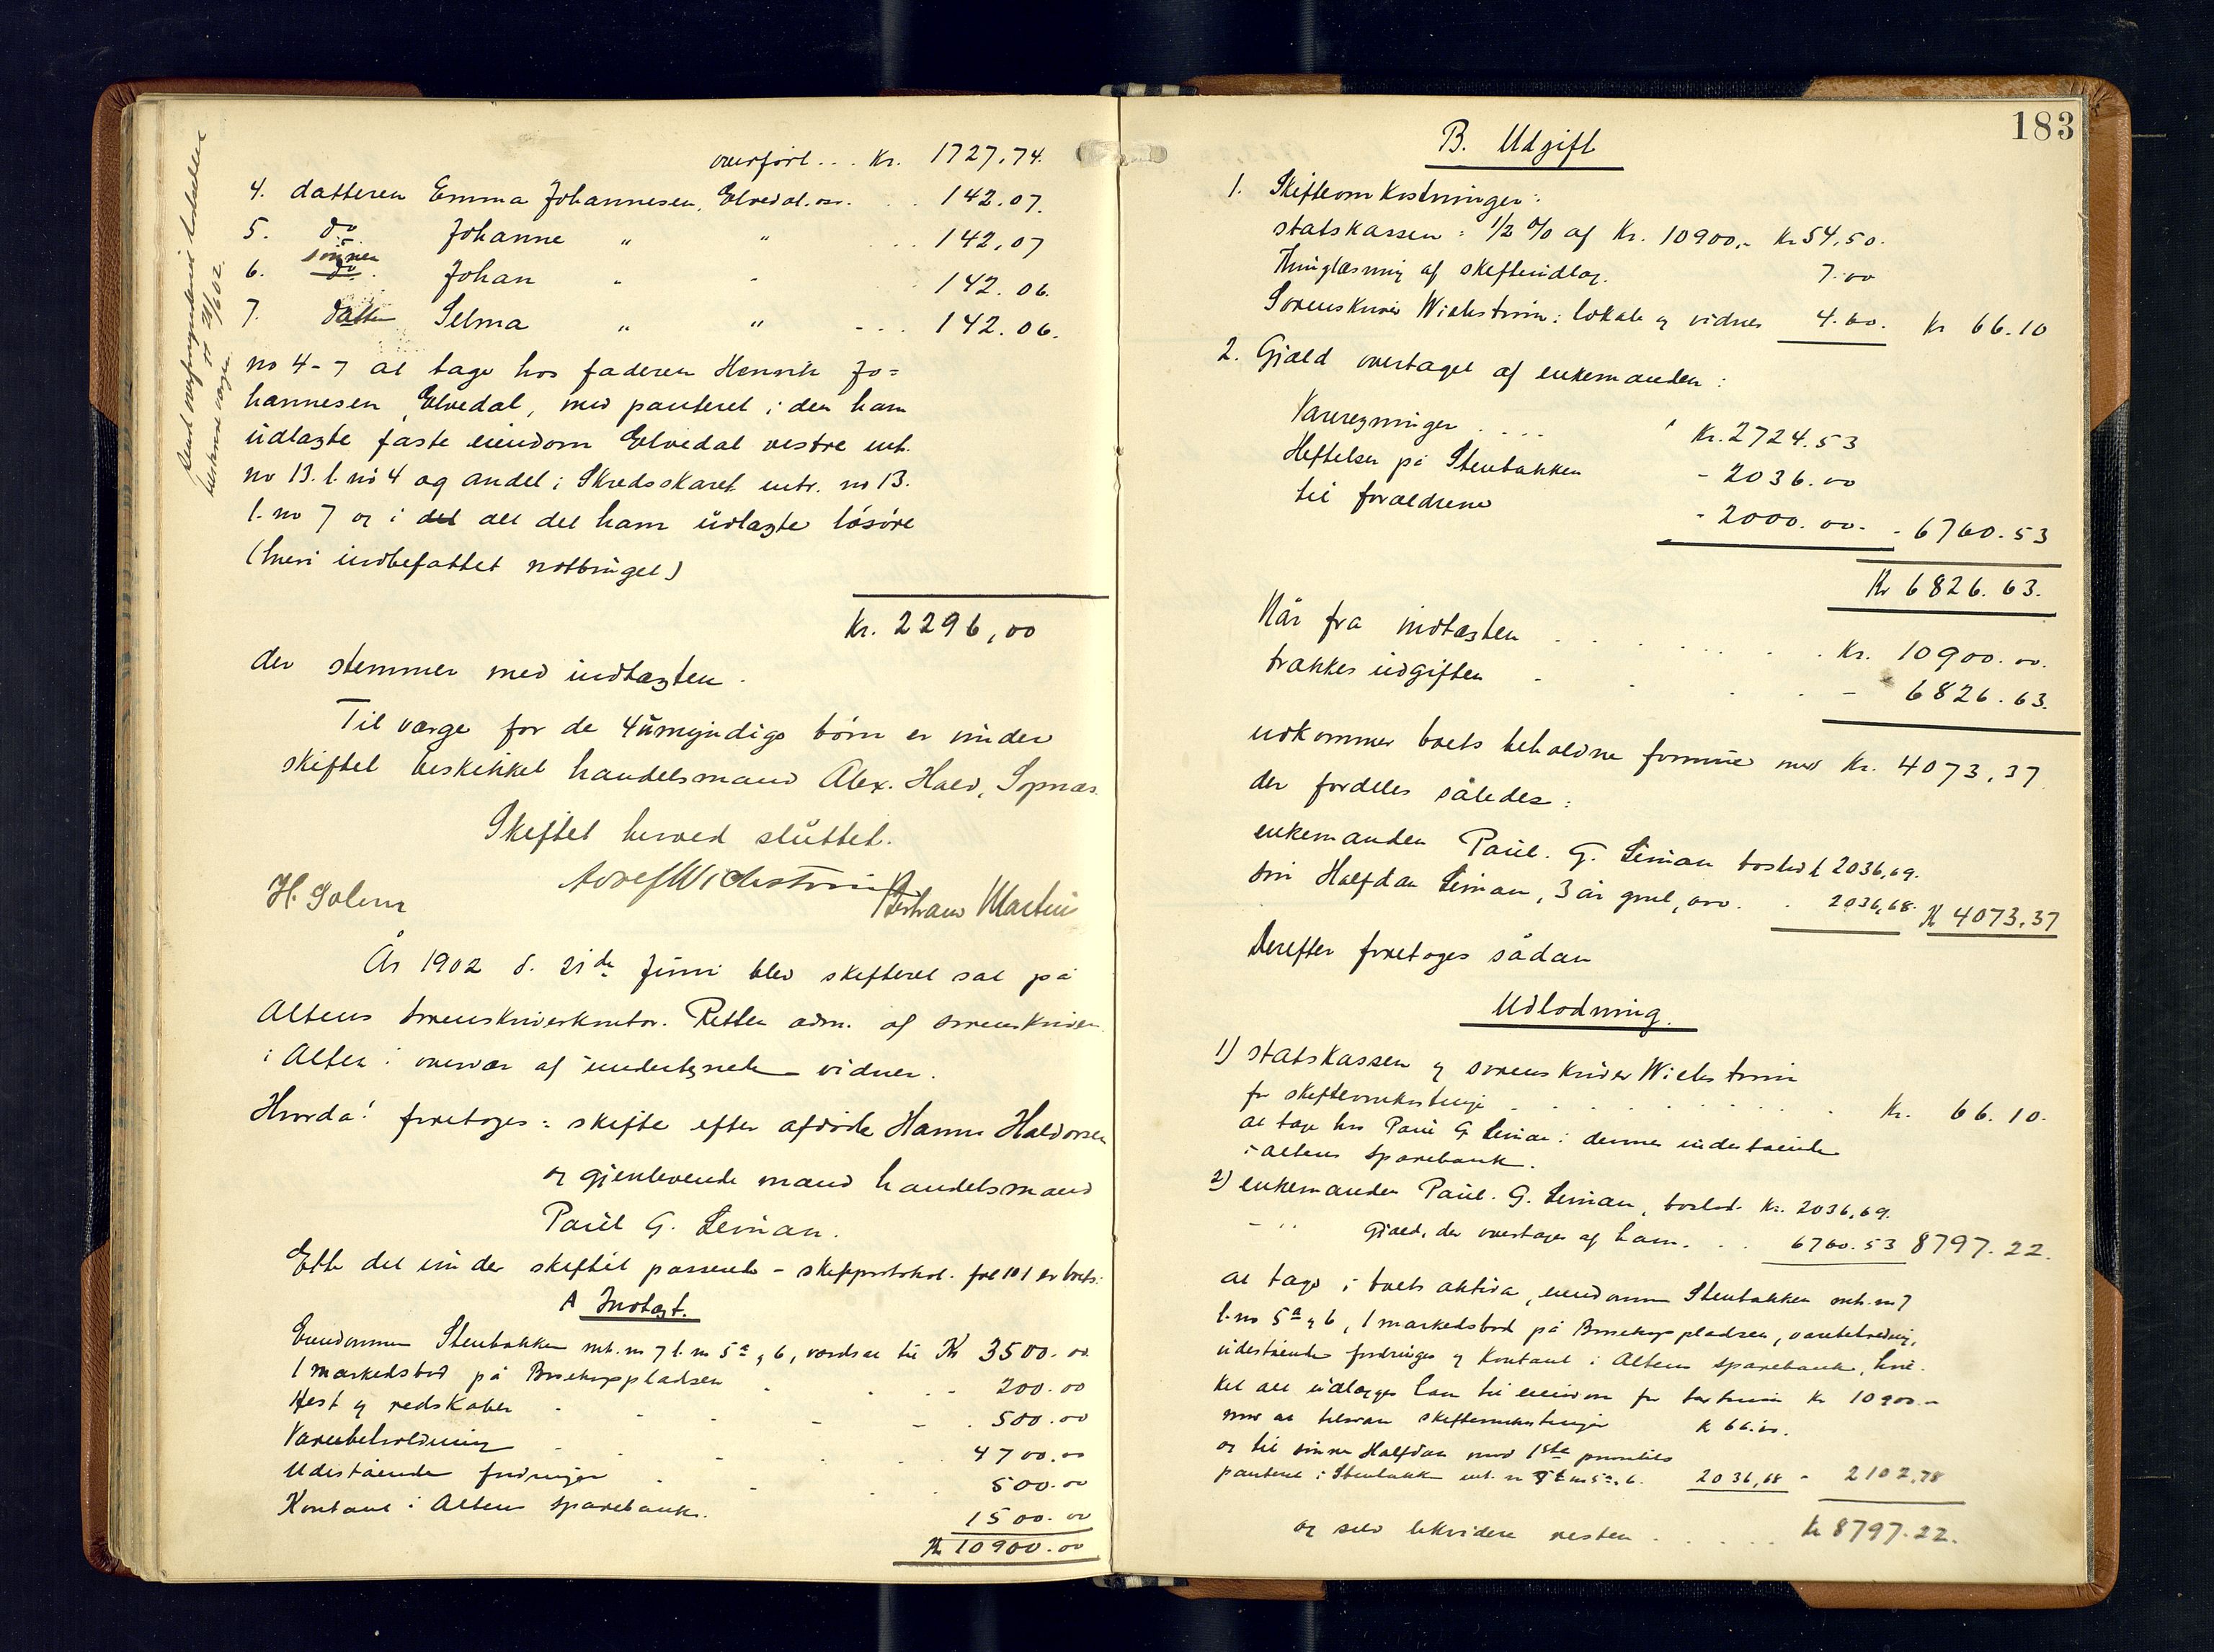 overført... Kr. 1727.74.
4. datteren Emma Johannesen, Elvedal. arv. . . 142.07.
5. do Johanne " " ... 142,07
6. sönnen do. Johan " " 142.06.
7. datter Selma " " - .. 142.06.
no 4-7 at tage hos faderen Henrik Jo=
hannesen, Elvedal, med panteret i den ham
udlagte faste eiendom Elvedal vestre mt.
no 13. l. no 4 og andel i Skredsskaret mtr. no 13.
l. no 7 og i det alt det ham udlagte løsøre
(heri indbefattet notbruget)
Kr. 2296,00
der stemmer med indtægten.
Til værge for de 4 umyndige børn er under
skiftet beskikket handelsmand Alex. Hald, Sopnæs.
Skiftet herved sluttet.
H. Solem
Adolf Wichstrøm
Bertrand Martin
År 1902 d. 21de Juni blev skifteret sat på
Altens sorenskriverkontor. Retten adm. af sorenskriveren
i Alten i overvær af undertegnede vidner.
Hvorda! foretoges: skifte efter afdøde Hanna Haldorsen
og gjenlevende mand handelsmand
Paul G. Sinian.
Efter det under skiftet passerede - skifteprotokol. fol 101 er boets:
A Indtægt.
Eiendommen Stenbakken mt. no 7 l. no 5a og 6, værdsat til Kr 3500.00
1 markedsbod på Bosekoppladsen 200.00
Hest og redskaber 500.00
Varebeholdning 4700.00
Udestående fordringer 500.00
Kontant i Altens sparebank. 1500.00
Kr 10900.00
183
B. Udgift
1. Skifteomkostninger:
statskassen: 1/2 % af Kr. 10900,- Kr 54,50.
Thinglæsning af skifteudlæg. 7.00
Sorenskriver Wichstrøm: lokale og vidner 4.60. Kr 66.10
2. Gjæld overtaget af enkemanden:
Vareregninger .... Kr. 2724.53
Heftelser på Stenbakken - 2036.00
til forældrene - 2000.00. - 6760.53
Kr 6826.63.
Når fra indtægten . . . . . . Kr. 10900.00.
trækkes udgiften . . . . - 6826.63.
udkommer boets beholdne formue med Kr. 4073,37
der fordeles således:
enkemanden Paul. G. Sinian boslod k 2036,69.
søn Halfdan Sinian, 3 år gml, arv. . 2036,68. Kr 4073,37
Derefter foretoges sådan
Udlodning.
1) statskassen og sorenskriver Wichstrøm
for skifteomkostninger . . . . . . Kr. 66.10.
at tage hos Paul G Sinian i dennes indestående
i altens sparebank.
2) enkemanden Paul. G. Sinian, boslod. Kr. 2036,69.
- " gjæld, der overtages af ham. . . 6760.53 8797.22.
at tage i boets aktiva, eiendommen Stenbakken mt. no 7
l. no 5a og 6, 1 markedsbod på Bosekoppladsen, varebeholdning,
udestående fordringer og kontant i Altens sparebank, hvil-
ket alt udlægges ham til eiendom for taxtsum kr 10900.-
mod at tilsvare skifteomkostninger k 66.10.
og til sønnen Halfdan mod 1ste prioritets
panteret i Stenbakken mt. no 7 l no 5a, 6. 2036,68 - 2102,78
og selv likvidere resten . . . . . Kr 8797.22.